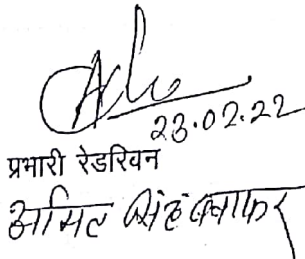 23.02.22
प्रभारी रेडरिवन
अमित सिंह